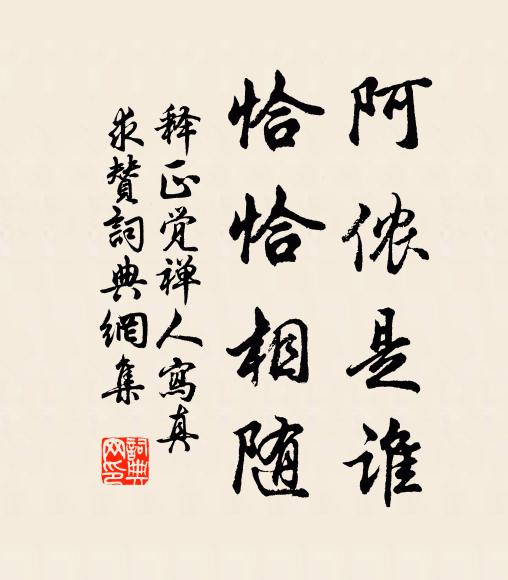 阿侬是谁
恰恰相随
释正觉禅人寫真
求赞詞典網集
詞典网印